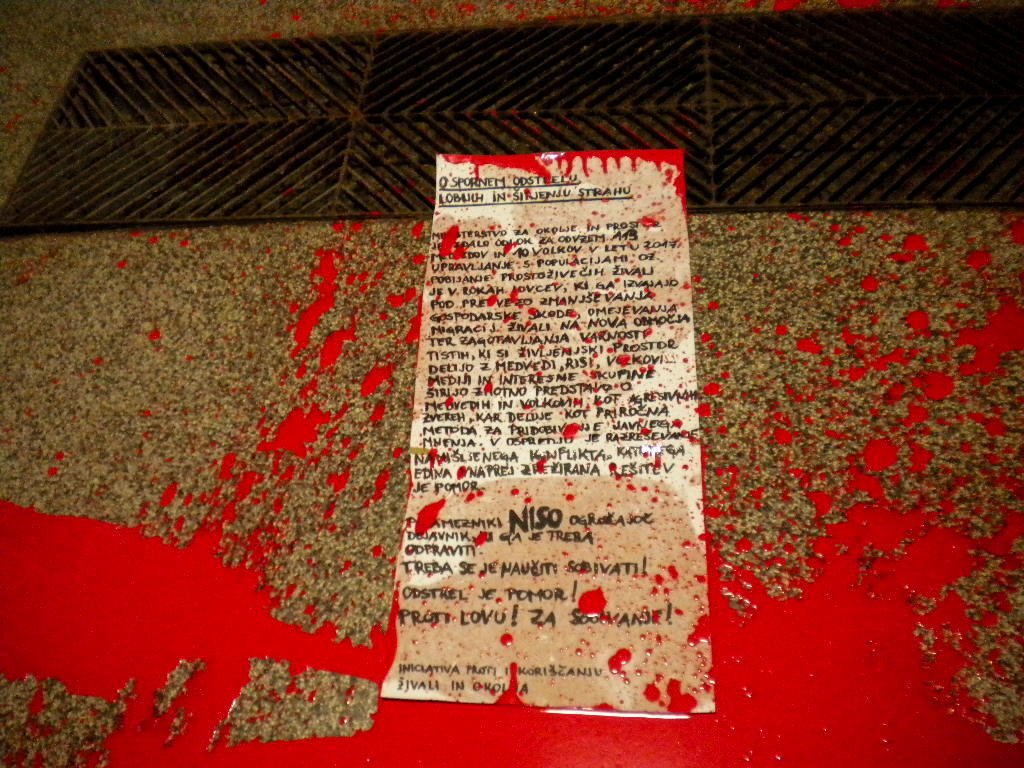 O SPORNEM ODSTRELU
IN ŠIRJENJU STRAHU
MINISTERSTVO ZA OKOLJE IN PROSTOR
JE IZDALO ODLOK ZA ODVZEM 113
MEDVEDOV IN 10 VOLKOV V LETU 2017.
UPRAVLJANJE S POPULACIJAMI OZ.
POBIJANJE PROSTOŽIVEČIH ŽIVALI
JE V ROKAH LOVCEV, KI GA IZVAJAJO
POD PRETVEZO ZMANJŠEVANJA
GOSPODARSKE ŠKODE, OMEJEVANJA
MIGRACIJ ŽIVALI NA NOVA OBMOČJA
TER ZAGOTAVLJANJA VARNOSTI
TISTIH, KI SI ŽIVLJENJSKI PROSTOR
DELIJO Z MEDVEDI, RISI, VOLKOVI...
MEDIJI IN INTERESNE SKUPINE
ŠIRIJO ZMOTNO PREDSTAVO O
MEDVEDIH IN VOLKOVIH KOT AGRESIVNIH
ZVEREH, KAR DELUJE KOT PRIROČNA
METODA ZA PRIDOBIVANJE JAVNEGA
MNENJA. V OSPREDJU JE RAZREŠEVANJE
NAMIŠLJENEGA KONFLIKTA, KATEREGA
EDINA VNAPREJ ZREŽIRANA REŠITEV
JE POMOR.
POSAMEZNIKI NISO OGROŽAJOČ
DEJAVNIK, KI GA JE TREBA
ODPRAVITI
TREBA SE JE NAUČITI SOBIVATI!
ODSTREL JE POMOR!
PROTI LOVU! ZA SOBIVANJE!
INICIATIVA PROTI IZKORIŠČANJU
ŽIVALI IN OKOLJA